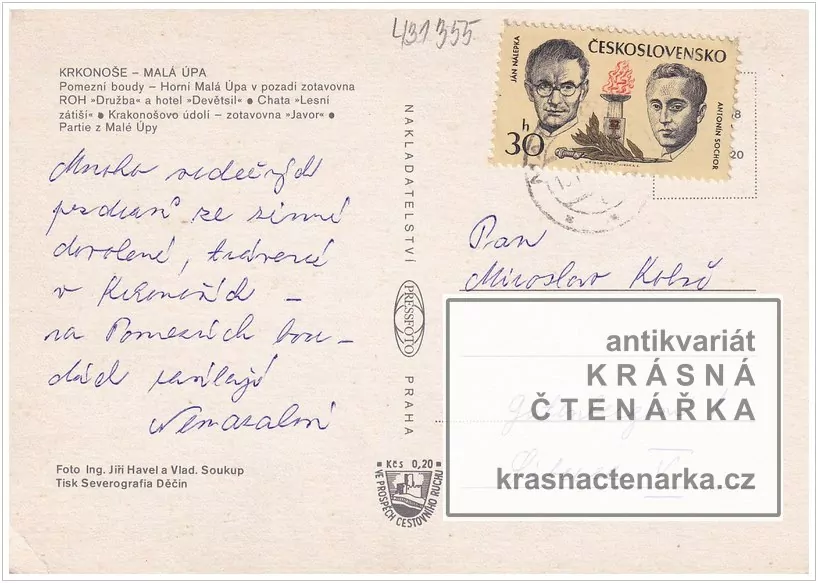 431355
KRKONOŠE – MALÁ ÚPA
Pomezní boudy – Horní Malá Úpa v pozadí zotavovna
ROH »Družba« a hotel »Devětsil« ● Chata »Lesní
zátiší« ● Krakonošovo údolí – zotavovna »Javor« ●
Partie z Malé Úpy
Mnoho srdečných
pozdravů ze zimní
dovolené, trávené
v Krkonoších –
na Pomezních bou-
dách posílají
Foto Ing. Jiří Havel a Vlad. Soukup
Tisk Severografia Děčín
NAKLADATELSTVÍ
PRESSFOTO
PRAHA
Kčs 0,20
VE PROSPĚCH CESTOVNÍHO RUCHU
JÁN NÁLEPKA
ČESKOSLOVENSKO
ANTONÍN SOCHOR
30 h
Pan
Miroslav
antikvariát
KRÁSNÁ
ČTENÁŘKA
krasnactenarka.cz